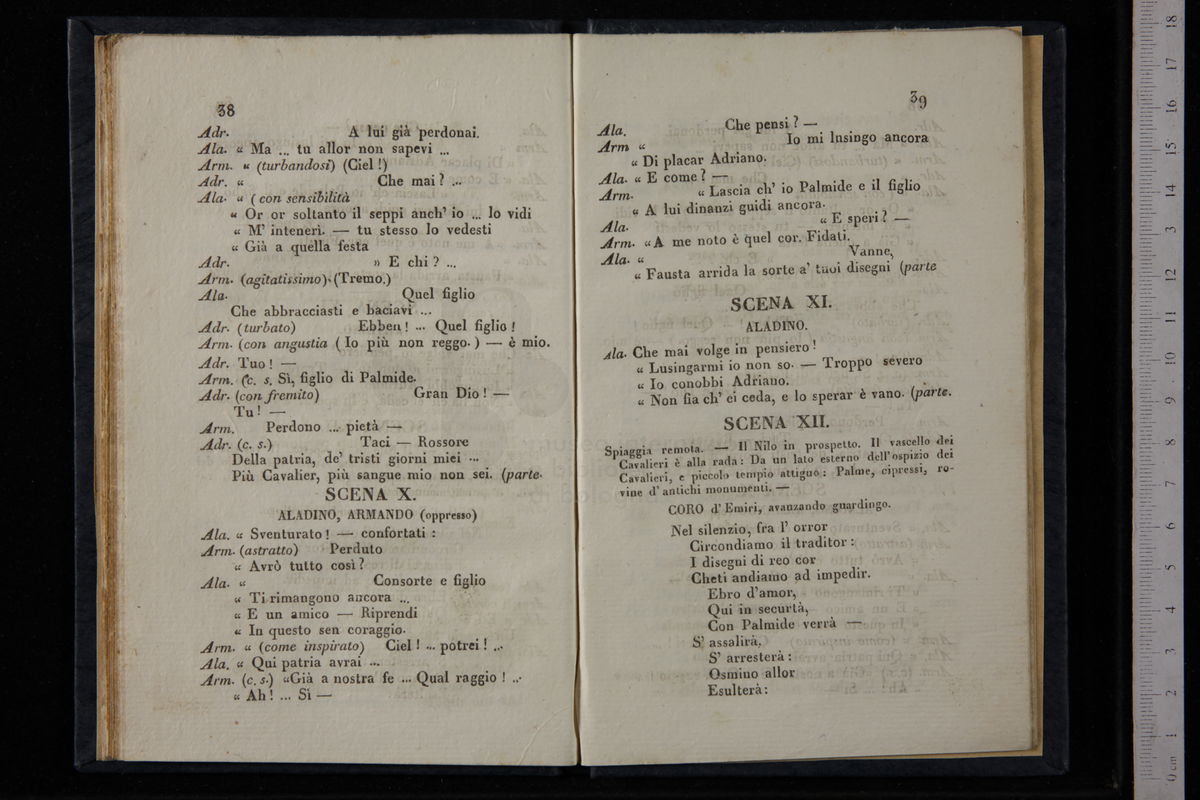 38
Adr. A lui già perdonai.
Ala. « Ma ... tu allor non sapevi ...
Arm. « (turbandosi) (Ciel !)
Adr. « Che mai ? ...
Ala. « ( con sensibilità
« Or or soltanto il seppi anch' io ... lo vidi
« M' intenerì. — tu stesso lo vedesti
« Già a quella festa
Adr. » E chi ? ...
Arm. (agitatissimo). (Tremo.)
Ala. Quel figlio
Che abbracciasti e baciavi ...
Adr. (turbato) Ebben ! ... Quel figlio !
Arm. (con angustia ( Io più non reggo. ) — è mio.
Adr. Tuo ! —
Arm. (c. s. Sì, figlio di Palmide.
Adr. (con fremito) Gran Dio ! —
Tu ! —
Arm. Perdono ... pietà —
Adr. (c. s.) Taci — Rossore
Della patria, de' tristi giorni miei ...
Più Cavalier, più sangue mio non sei. (parte.
SCENA X.
ALADINO, ARMANDO (oppresso)
Ala. « Sventurato ! — confortati :
Arm. (astratto) Perduto
« Avrò tutto così ?
Ala. « Consorte e figlio
« Ti rimangono ancora ...
« E un amico — Riprendi
« In questo sen coraggio.
Arm. « (come inspirato) Ciel ! ... potrei ! ...
Ala. « Qui patria avrai ...
Arm. (c. s.) «Già a nostra fe ... Qual raggio ! ...
« Ah ! ... Sì —
39
Ala. Che pensi ? —
Arm « Io mi lusingo ancora
« Di placar Adriano.
Ala. « E come ? —
Arm. « Lascia ch' io Palmide e il figlio
« A lui dinanzi guidi ancora.
Ala. « E speri ? —
Arm. «A me noto è quel cor. Fidati.
Ala. « Vanne,
« Fausta arrida la sorte a' tuoi disegni (parte
SCENA XI.
ALADINO.
Ala. Che mai volge in pensiero !
« Lusingarmi io non so. — Troppo severo
« Io conobbi Adriano.
« Non fia ch' ei ceda, e lo sperar è vano. (parte.
SCENA XII.
Spiaggia remota. — Il Nilo in prospetto. Il vascello dei
Cavalieri è alla rada : Da un lato esterno dell' ospizio dei
Cavalieri, e piccolo tempio attiguo : Palme, cipressi, ro-
vine d' antichi monumenti. —
CORO d' Emiri, avanzando guardingo.
Nel silenzio, fra l' orror
Circondiamo il traditor :
I disegni di reo cor
Cheti andiamo ad impedir.
Ebro d'amor,
Qui in securtà,
Con Palmide verrà —
S' assalirà,
S' arresterà :
Osmino allor
Esulterà :
0 cm 1 2 3 4 5 6 7 8 9 10 11 12 13 14 15 16 17 18